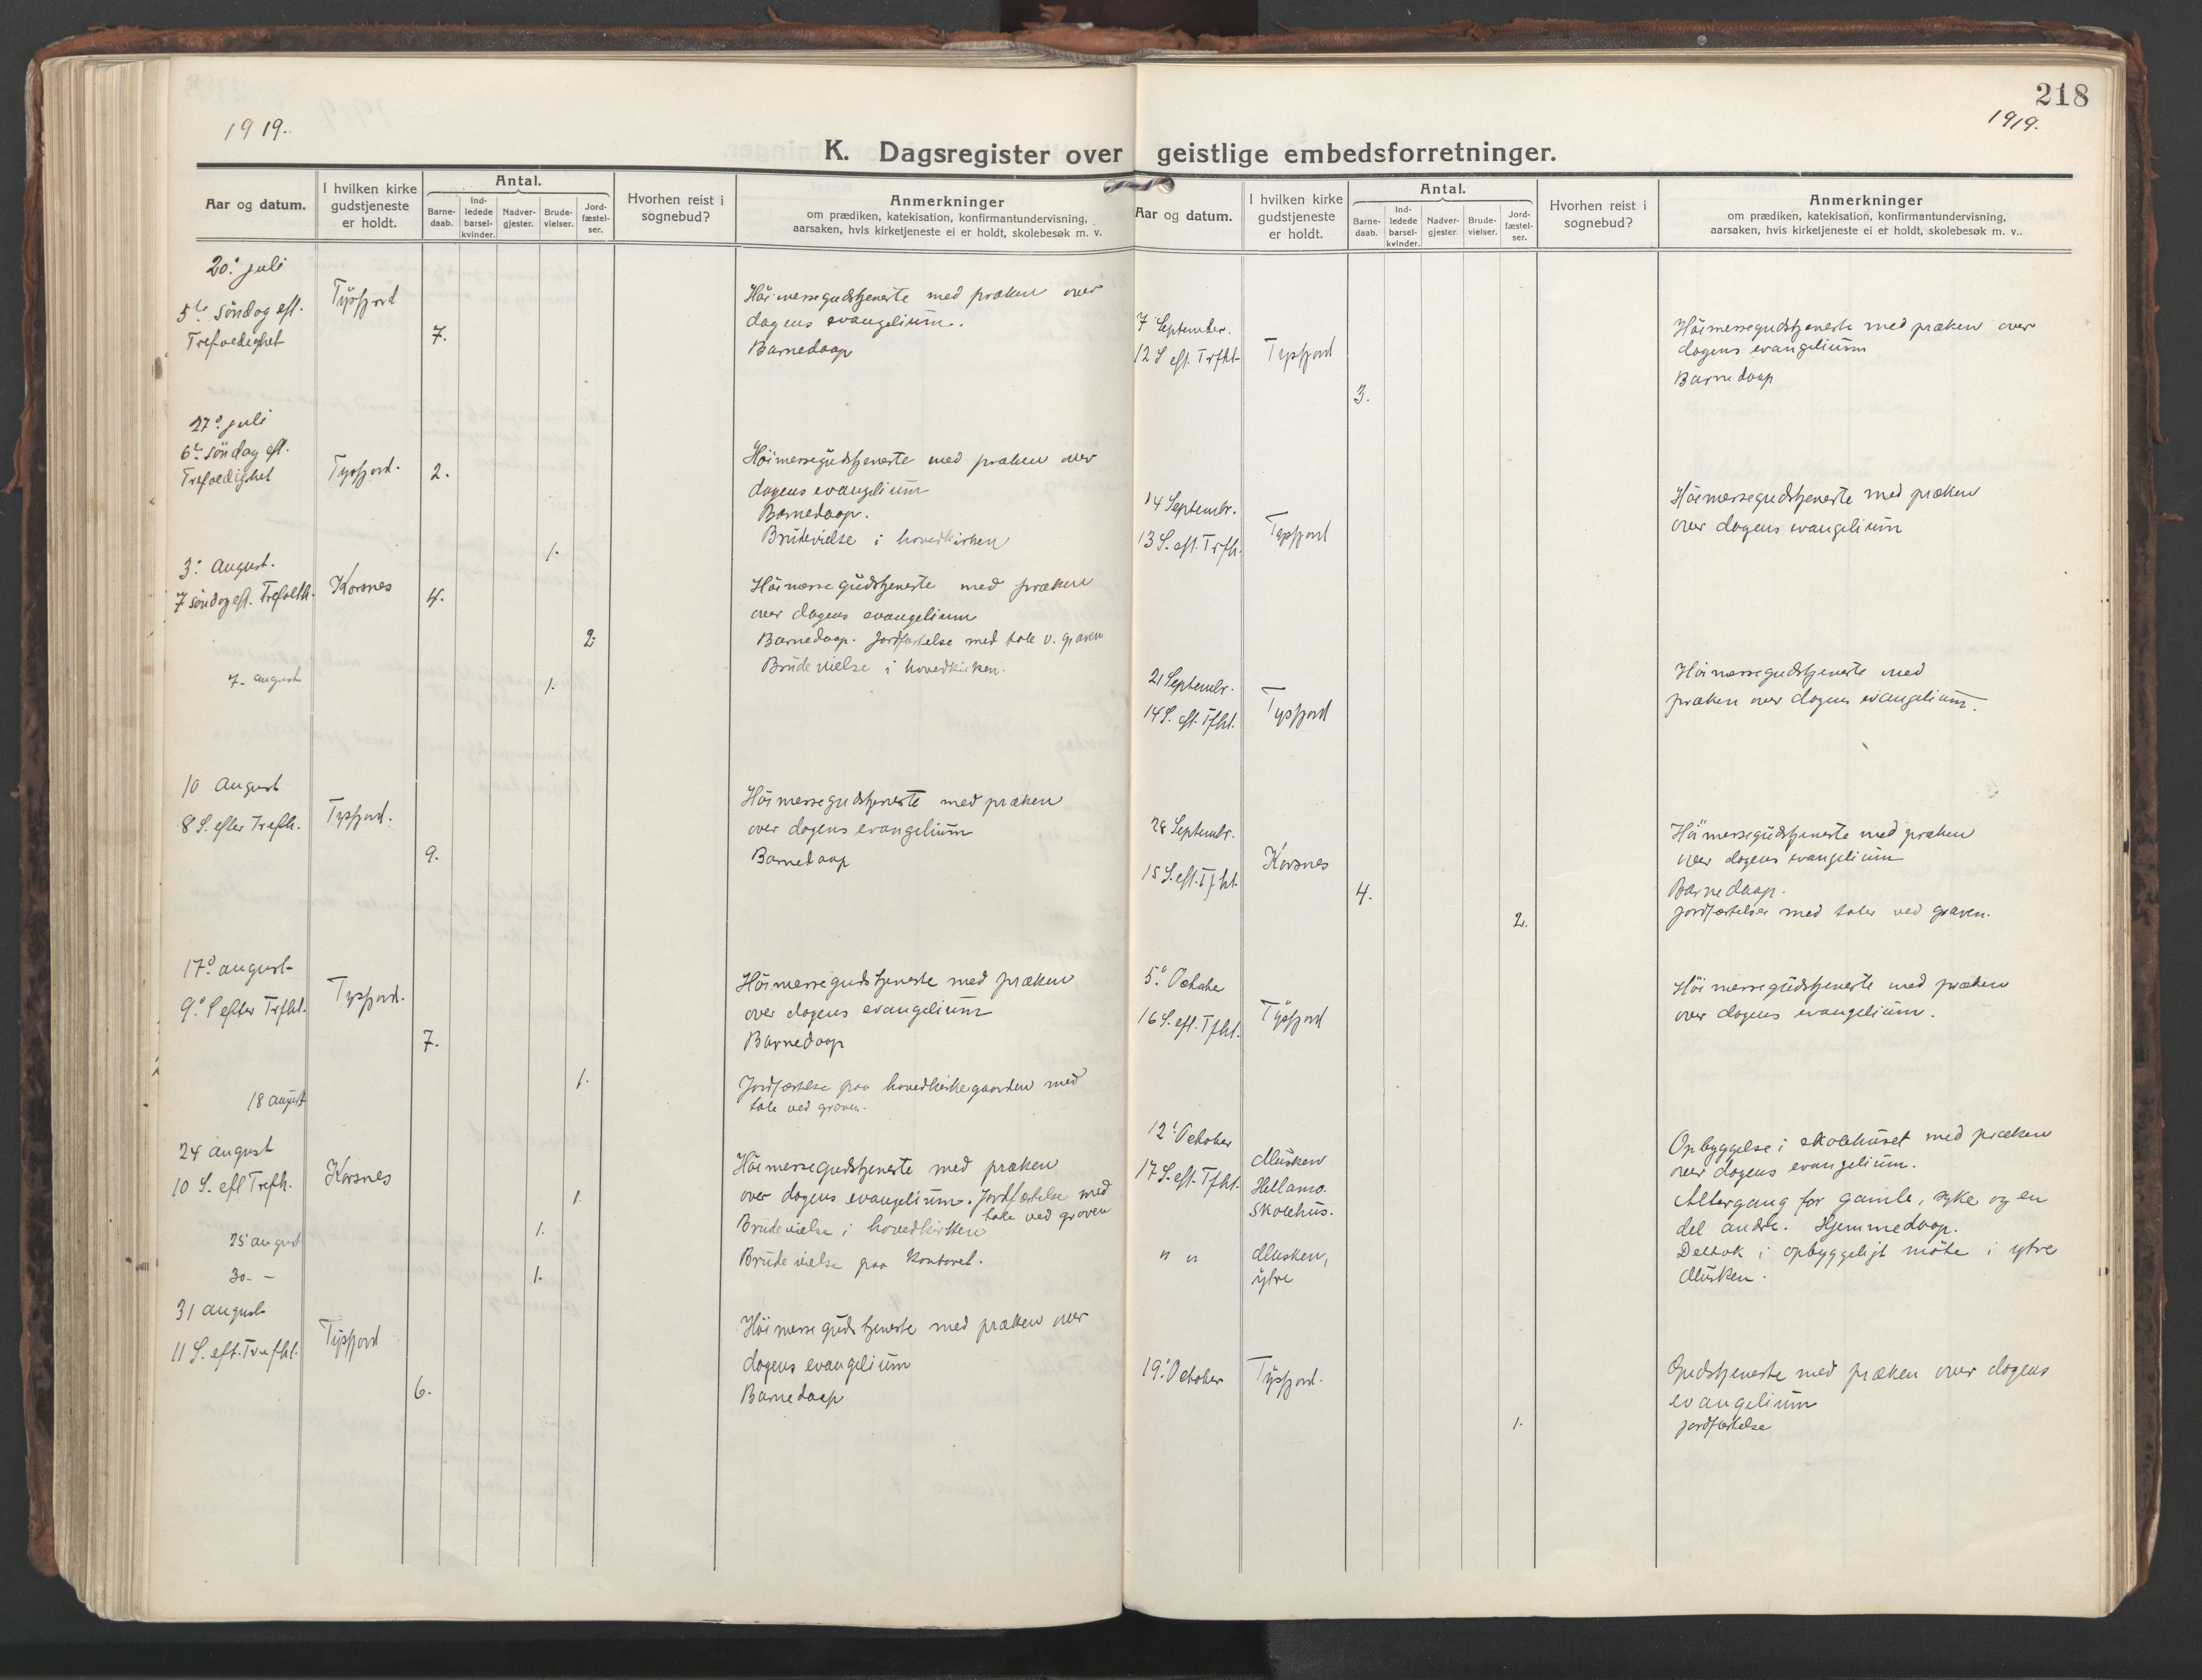 218
1919.
1919.
K. Dagsregister over geistlige embedsforretninger.
Aar og datum.
I hvilken kirke
gudstjeneste
er holdt.
Antal.
Barne-
daab.
Ind-
ledede
barsel-
kvinder.
Nadver-
gjester.
Brude-
vielser.
Jord-
fæstel-
ser.
Hvorhen reist i
sognebud?
Anmerkninger
om prædiken, katekisation, konfirmantundervisning,
aarsaken, hvis kirketjeneste ei er holdt, skolebesøk m. v.
20. juli
5te søndag eft.
Trefoldighet
Tysfjord
7.
Høimessegudstjeneste med præken over
dagens evangelium.
Barnedaap
27. juli
6te søndag eft.
Trefoldighet
Tysfjord.
2.
Høimessegudstjeneste med præken over
dagens evangelium
Barnedaap.
Brudevielse i hovedkirken
1.
3. august.
7 søndag eft. Trefoldh.
Korsnes
4.
2.
Høimessegudstjeneste med præken
over dagens evangelium
Barnedaap. Jordfæstelse med tale v. graven
7. august
1.
Brudevielse i hovedkirken.
10 august
8 S. efter Trefh.
Tysfjord.
9.
Høimessegudstjeneste med præken
over dagens evangelium
Barnedaap
17. august
9. S efter Trfht.
Tysfjord.
7.
Høimessegudstjeneste med præken
over dagens evangelium
Barnedaap
18 august
1.
Jordfæstelse paa hovedkirkegaarden med
tale ved graven.
24 august
10 S. eft Trefh.
Korsnes
1.
Høimessegudstjeneste med præken
over dagens evangelium. Jordfæstelse med
tale ved graven
25 august
1.
Brudevielse i hovedkirken
30. -
1.
Brudevielse paa kontoret.
31 august
11 S. eft. Trefht.
Tysfjord
6.
Høimessegudstjeneste med præken over
dagens evangelium
Barnedaap
Aar og datum.
I hvilken kirke
gudstjeneste
er holdt.
Antal.
Barne-
daab.
Ind-
ledede
barsel-
kvinder.
Nadver-
gjester.
Brude-
vielser.
Jord-
fæstel-
ser.
Hvorhen reist i
sognebud?
Anmerkninger
om prædiken, katekisation, konfirmantundervisning,
aarsaken, hvis kirketjeneste ei er holdt, skolebesøk m. v..
7 September.
12 S eft. Trfht
Tysfjord
3.
Høimessegudstjeneste med præken over
dagens evangelium
Barnedaap
14 Septembr.
13 S. eft. Trfh.
Tysfjord
Høimessegudstjeneste med præken
over dagens evangelium
21 Septembr.
14 S. eft. Tfht.
Tysfjord
Høimessegudstjeneste med
præken over dagens evangelium.
28 Septembr.
15 S. eft. Tfht.
Korsnes
4.
2.
Høimessegudstjeneste med præken
over dagens evangelium
Barnedaap.
Jordfæstelser med taler ved graven.
5. October
16 S. eft. Tfht.
Tysfjord
Høimessegudstjeneste med præken
over dagens evangelium.
12. October
17 S. eft. Tfht.
Musken
Hellamo.
Skolehus.
Opbyggelse i skolehuset med præken
over dagens evangelium.
Altergang for gamle, syke og en
del andre. Hjemmedaap.
" "
Musken,
ytre
Deltok i opbyggeligt møte i ytre
Musken.
19. October
Tysfjord.
1.
Gudstjeneste med præken over dagens
evangelium
Jordfæstelse